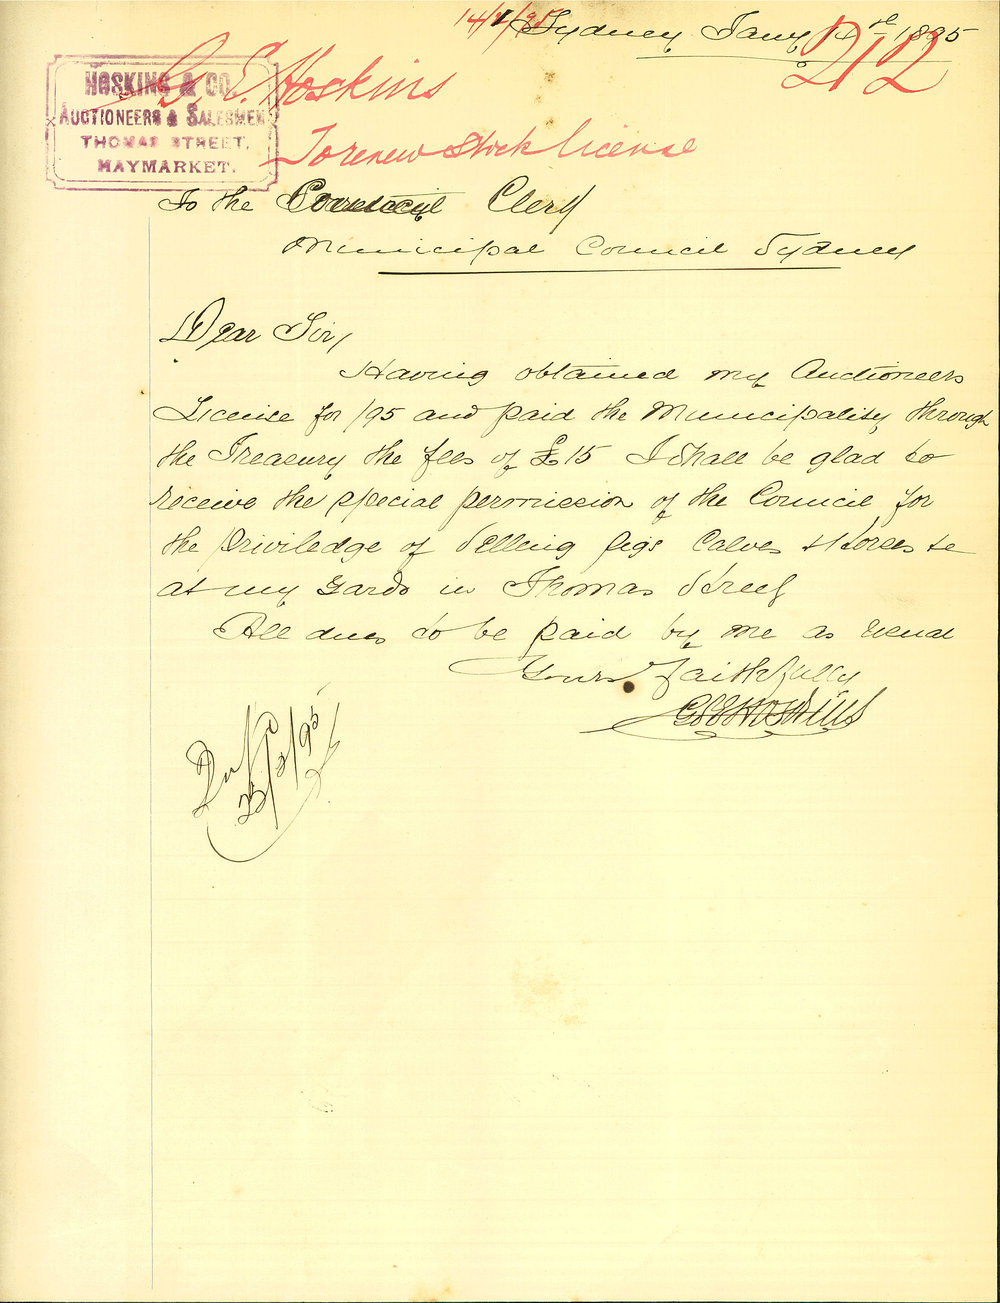 14/1/95
Sydney Jany 14th 1895
212
HOSKINS & CO.
AUCTIONEERS & SALESMEN
THOMAS STREET,
HAYMARKET.
G. E. Hoskins
To renew Stock license
To the Clerk
Municipal Council Sydney
Dear Sir/
Having obtained my Auctioneers
License for /95 and paid the Municipality through
the Treasury the fees of £15 I shall be glad to
receive the special permission of the Council for
the priviledge of Selling pigs Calves & Horses &c
at my yards in Thomas Street
All dues to be paid by me as usual
Yours Faithfully
G E Hoskins
25/2/95